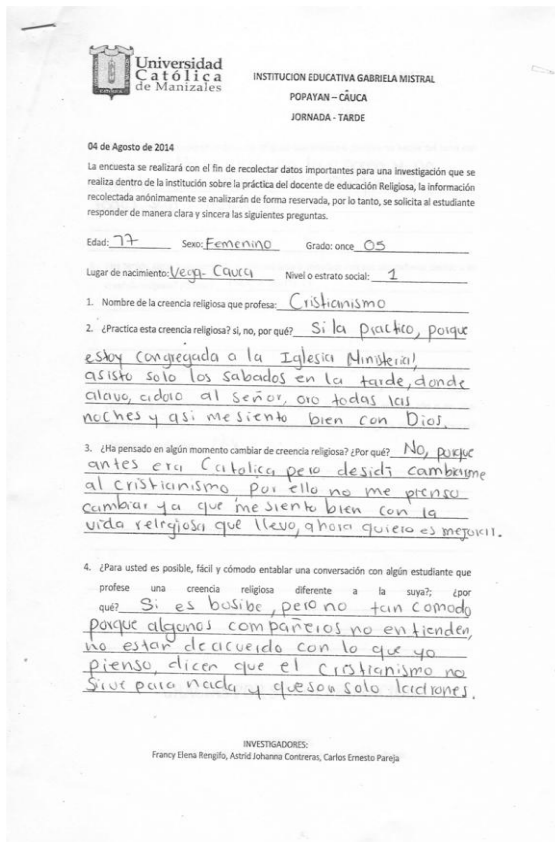 Universidad
Católica
de Manizales
INSTITUCION EDUCATIVA GABRIELA MISTRAL
POPAYAN – CAUCA
JORNADA - TARDE
04 de Agosto de 2014
La encuesta se realizará con el fin de recolectar datos importantes para una investigación que se
realiza dentro de la institución sobre la práctica del docente de educación Religiosa, la información
recolectada anónimamente se analizarán de forma reservada, por lo tanto, se solicita al estudiante
responder de manera clara y sincera las siguientes preguntas.
Edad: 17 Sexo: Femenino Grado: once 05
Lugar de nacimiento: Vega- Cauca Nivel o estrato social: 1
1. Nombre de la creencia religiosa que profesa: Cristianismo
2. ¿Practica esta creencia religiosa? si, no, por qué? Si la practico, porque
estoy congregada a la Iglesia Ministerial,
asisto solo los sabados en la tarde, donde
alavo, adoro al Señor, oro todas las
noches y asi me siento bien con Dios.
3. ¿Ha pensado en algún momento cambiar de creencia religiosa? ¿Por qué? No, porque
antes era Catolica pero desidi cambiarme
al cristianismo por ello no me pienso
cambiar ya que me siento bien con la
vida religiosa que llevo, ahora quiero es mejorar.
4. ¿Para usted es posible, fácil y cómodo entablar una conversación con algún estudiante que
profese una creencia religiosa diferente a la suya?; ¿por
qué? Si es bosibe, pero no tan comodo
porque algunos compañeros no entienden,
no estar de acuerdo con lo que yo
pienso, dicen que el cristianismo no
sive para nada y que son solo ladrones.
INVESTIGADORES:
Francy Elena Rengifo, Astrid Johanna Contreras, Carlos Ernesto Pareja